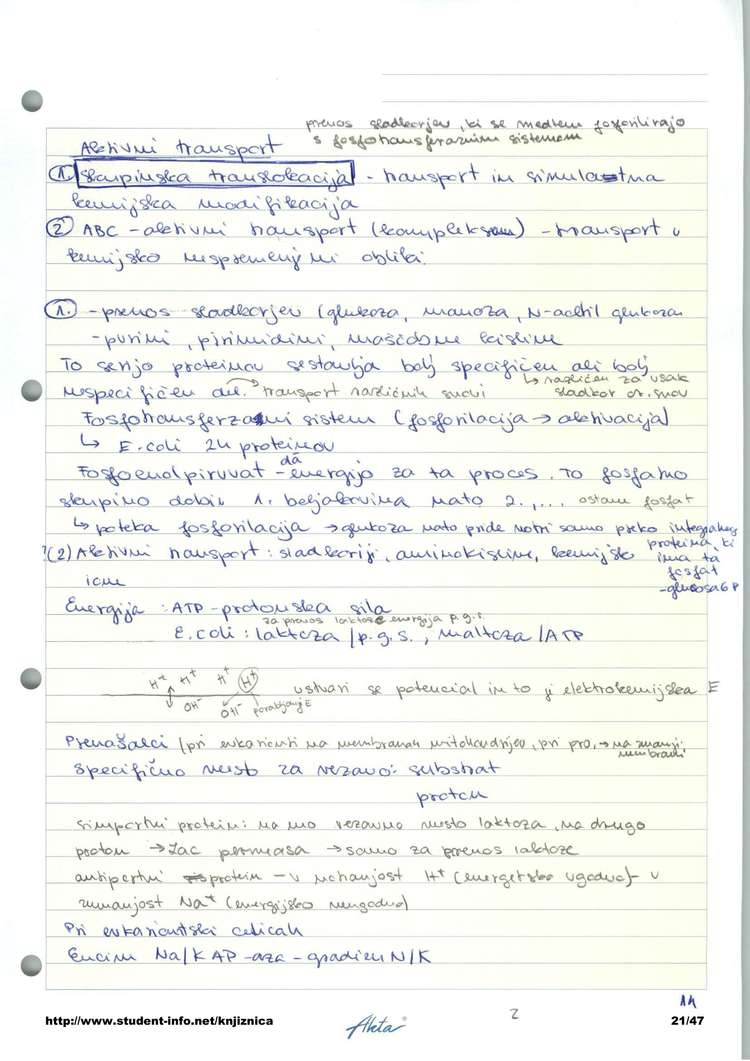 prenos sladkorjev, ki se medtem fosforilirajo
s fosfotransferaznim sistemom
Aktivni transport
1. skupinska translokacija - transport in simultastna
kemijska modifikacija
2. ABC - aktivni transport (kompleks) - transport v
kemijsko nespremenjeni obliki.
1. - prenos sladkorjev (glukoza, manoza, N-acetil glukozam
- purini, pirimidini, maščobne kisline
To serijo proteinov sestavlja bolj specifičen ali bolj
↳ različen za vsak
nespecifičen del. → transport različnih snovi
sladkor oz. snov
Fosfotransferzani sistem (fosforilacija → aktivacija)
↳ E.coli 24 proteinov
dá
Fosfoenolpiruvat - energijo za ta proces. To fosfatno
skupino dobi 1. beljakovina nato 2., ... ostane fosfat
↳ poteka fosforilacija → glukoza nato pride notri samo preko integralnega
proteina, ki
(2) Aktivni transport: sladkorji, aminokisline, kemijsko
ima ta
ione
fosfat
- glucosa 6 P
Energija: ATP - protonska sila
za prenos laktoze energija p.g.s.
E.coli: laktoza / p.g.s., maltoza / ATP
H+ H+ H+ H+
OH- OH- porabljanje E
ustvari se potencial in to ji elektrokemijska E
Prenašalci (pri evkariontih na membranah mitohondrijev, pri pro. → na zunanji
membrani
specifično mesto za vezavo: substrat
proton
simportni protein: na eno vezavno mesto laktoza, na drugo
proton → Lac permeasa → samo za prenos laktoze
antiportni protein - v notranjost H+ (energetsko ugodno) - v
zunanjost Na+ (energijsko neugodno)
Pri evkariontski celicah
Encim Na/K AP-aza - gradien N/K
14
2
http://www.student-info.net/knjiznica
Akta
21/47